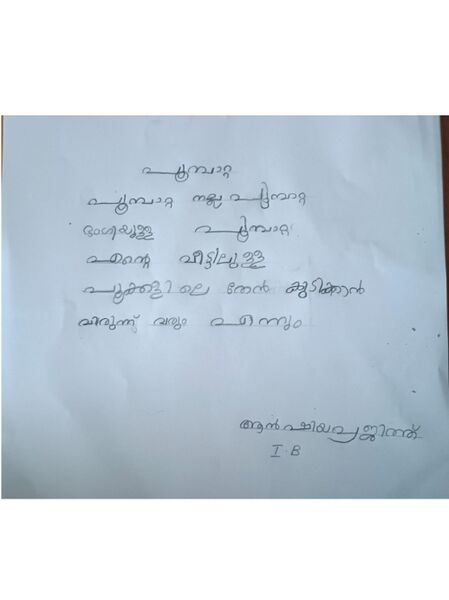 പൂമ്പാറ്റ
പൂമ്പാറ്റ നല്ല പൂമ്പാറ്റ
ഭംഗിയുള്ള പൂമ്പാറ്റ
എന്റെ വീട്ടിലുള്ള
പൂക്കളിലെ തേൻ കുടിക്കാൻ
വിരുന്ന് വരും എന്നും
ആൻഷിയ പ്രജിത്ത്
I.B